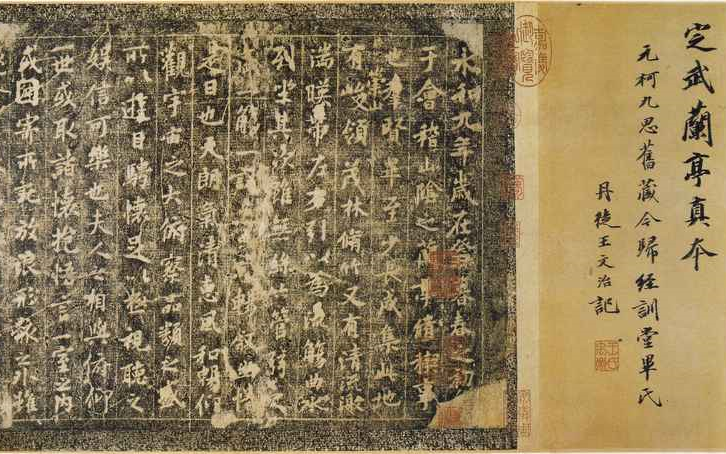 定武蘭亭真本
元柯九思舊藏今歸經訓堂畢氏
丹徒王文治記
永和九年歲在癸暮春之初
于會稽山陰之蘭亭脩稧事
也羣賢畢至少長咸集此地
有崇山峻領茂林脩竹又有清流激
湍暎帶左右引以為流觴曲水
列坐其次雖無絲竹管弦之
盛一觴一詠足以暢敘幽情
是日也天朗氣清惠風和暢仰
觀宇宙之大俯察品類之盛
所以遊目騁懷足以極視聽之
娛信可樂也夫人之相與俯仰
一世或取諸懷抱悟言一室之內
或因寄所託放浪形骸之外雖